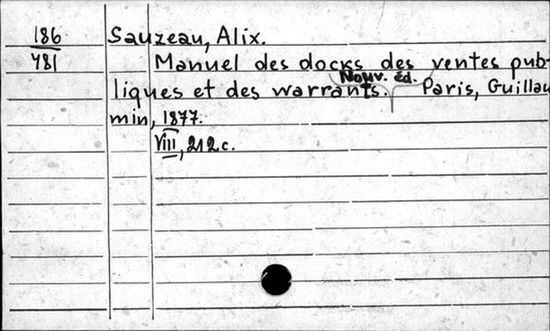 186
481
Sauzeau, Alix.
Manuel des docks des ventes pub-
liques et des warrants. Nouv. éd. Paris, Guillau
min, 1877.
VIII, 212 c.